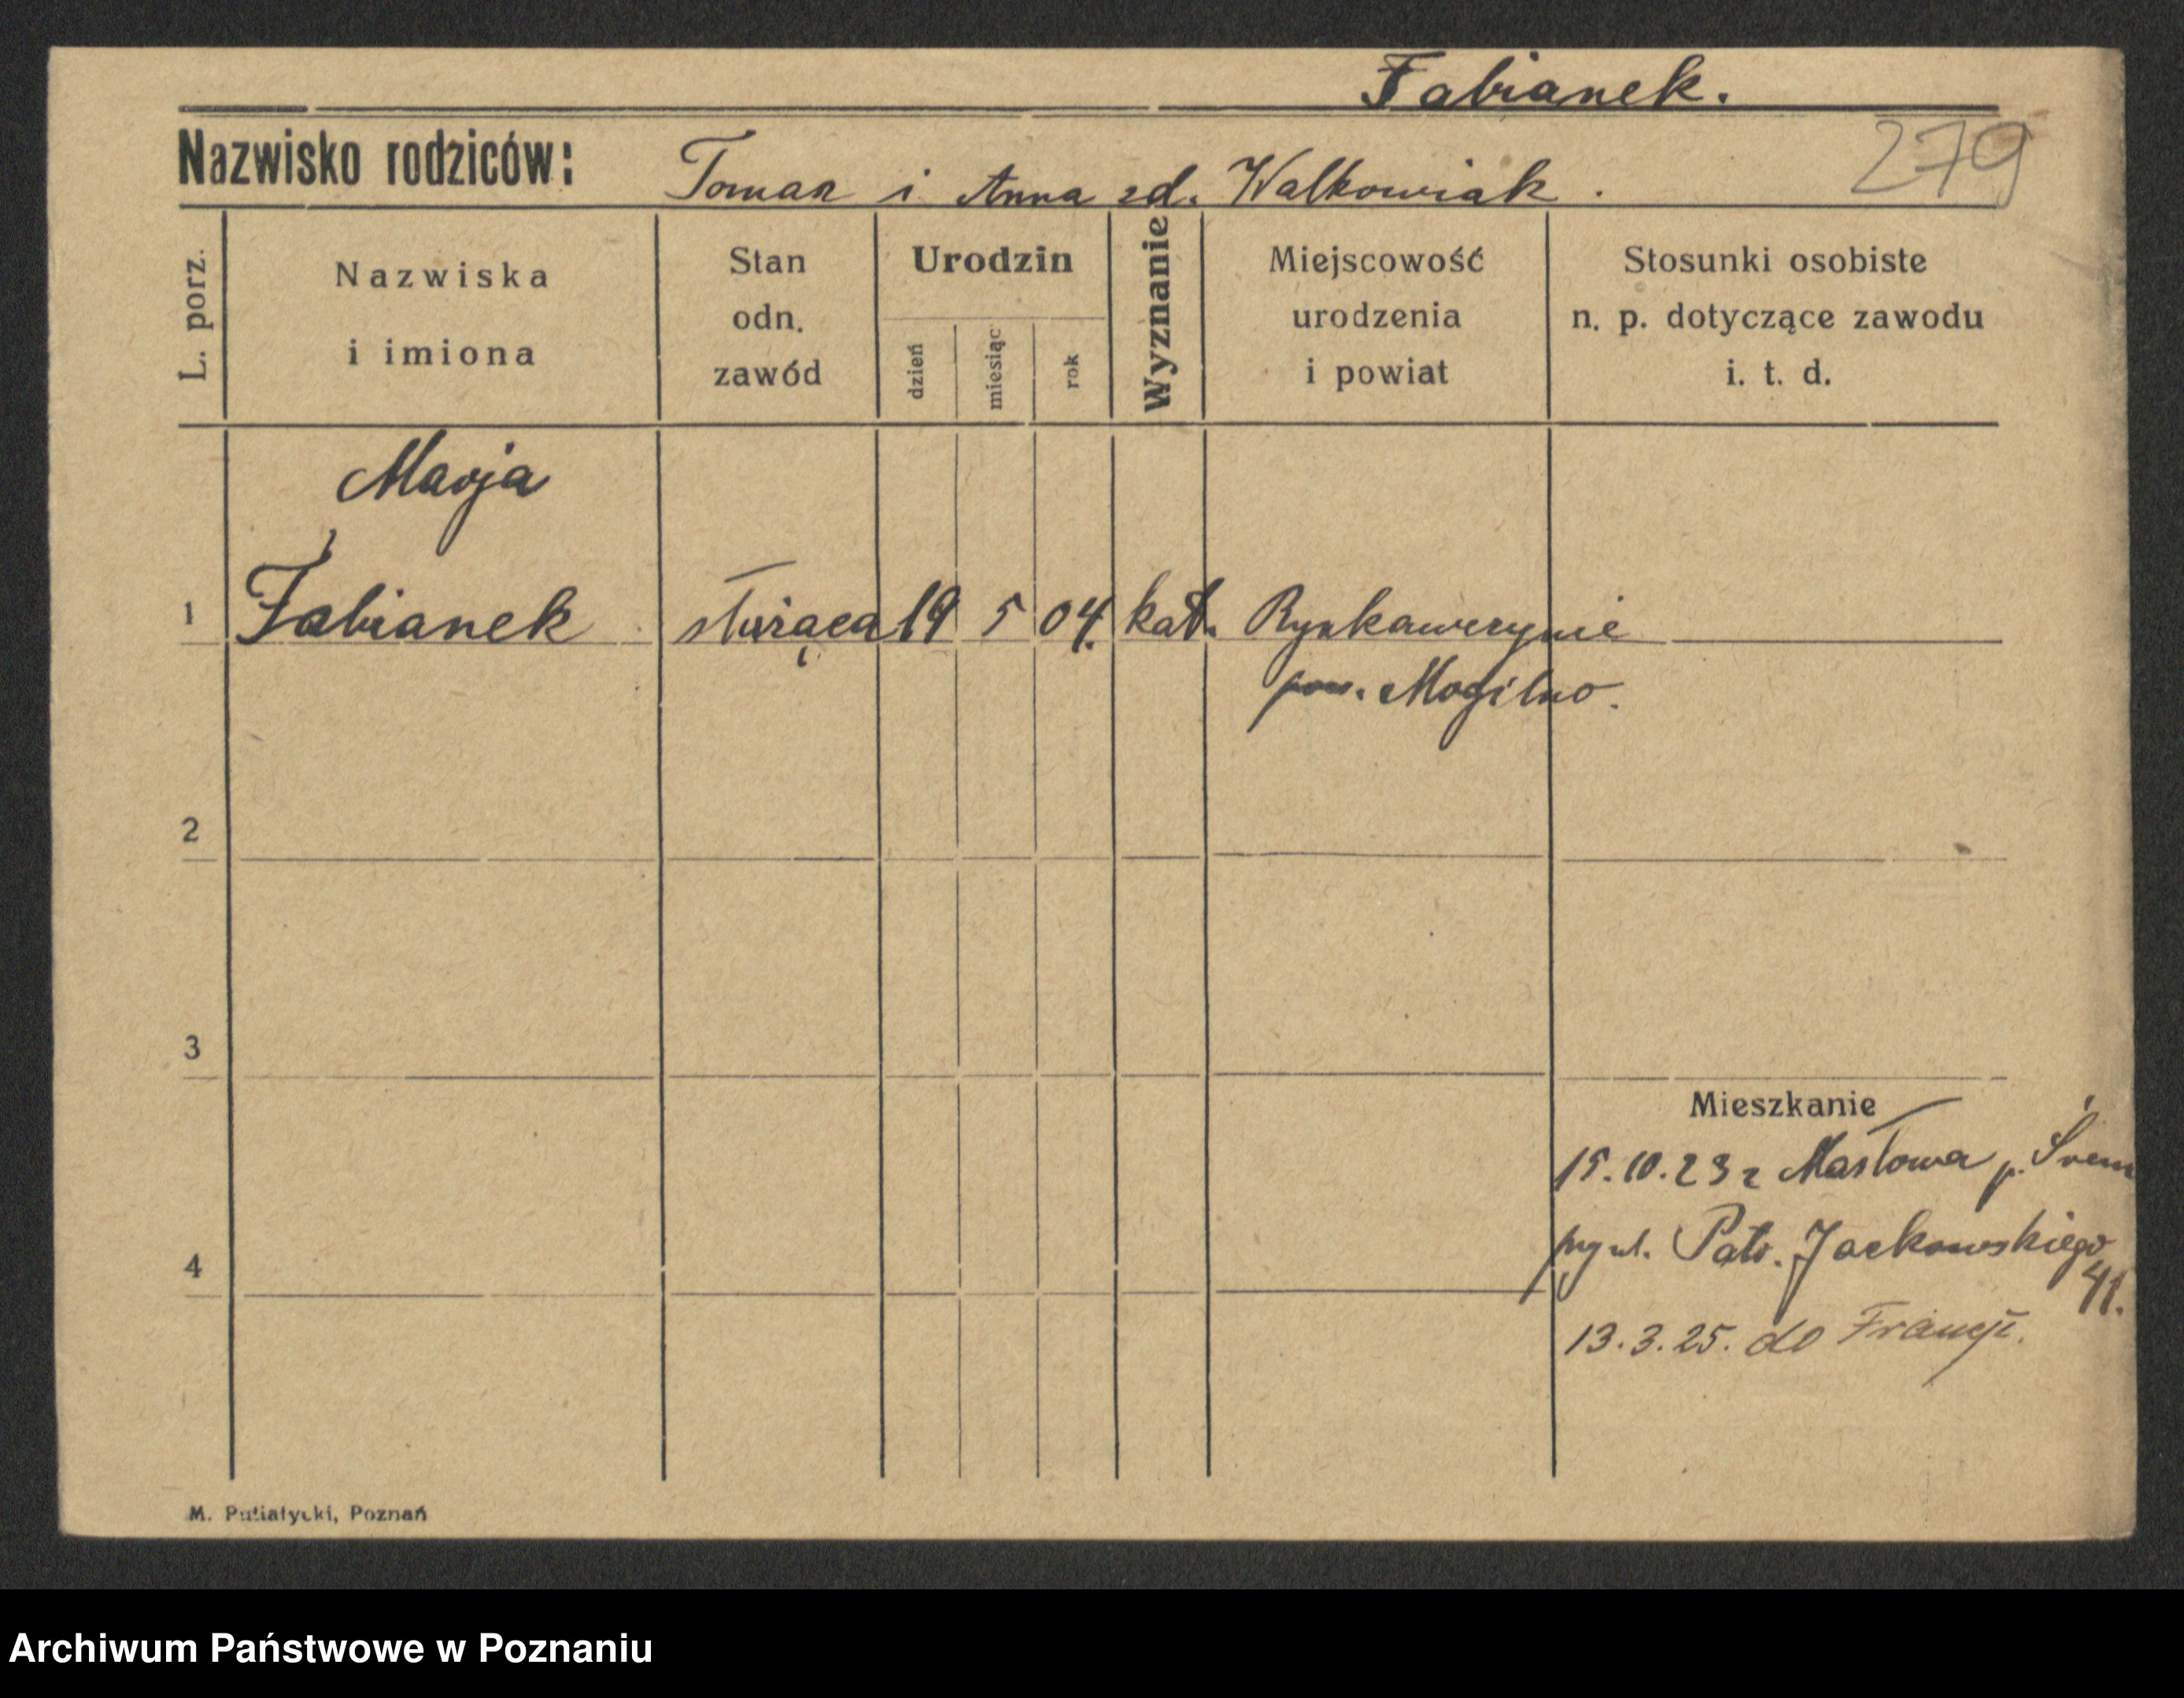 Fabianek.
Nazwisko rodziców: Tomasz i Anna zd. Walkowiak.
279
L. porz.
Nazwiska i imiona
Stan odn. zawód
Urodzin
dzień miesiąc rok
Wyznanie
Miejscowość urodzenia i powiat
Stosunki osobiste n. p. dotyczące zawodu i. t. d.
Marja
1 Fabianek służąca 19 5 04. kat.
pow. Mogilno.
2
3
Mieszkanie
15.10.23 z Masłowa p. Śrem
przy ul. Patr. Jackowskiego
4
41.
13.3.25. do Francji.
M. Putiatycki, Poznań
Archiwum Państwowe w Poznaniu